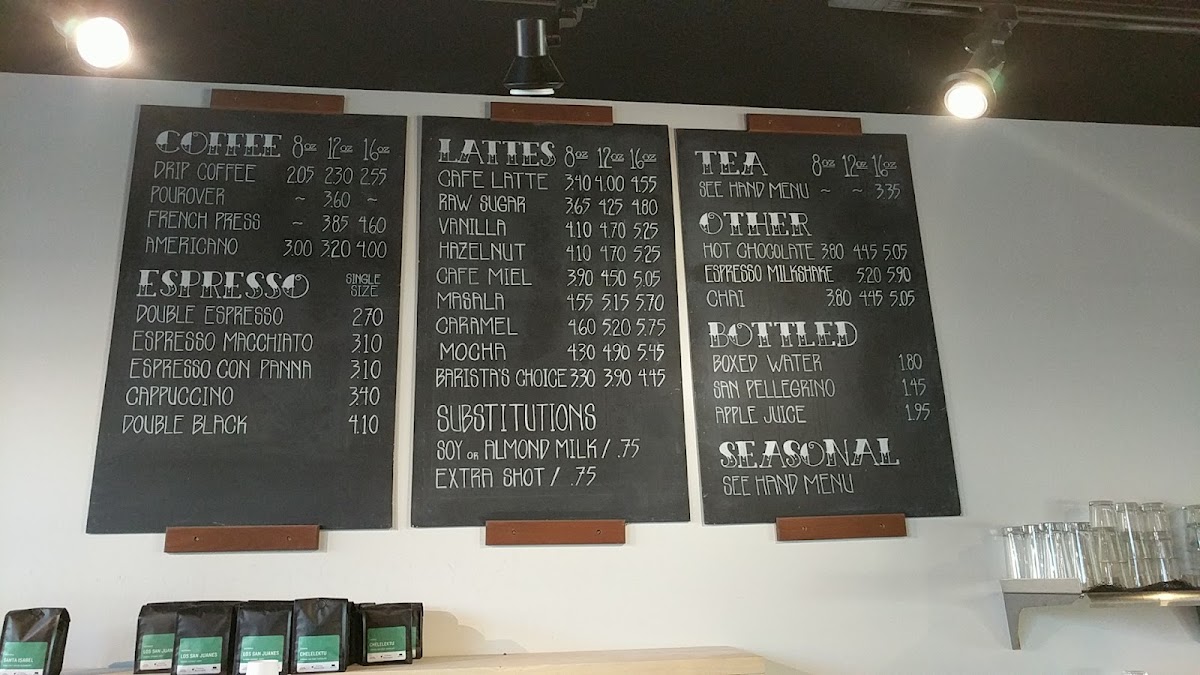 COFFEE 8oz 12oz 16oz
DRIP COFFEE 2.05 2.30 2.55
POUROVER ~ 3.60 ~
FRENCH PRESS ~ 3.85 4.60
AMERICANO 3.00 3.20 4.00
ESPRESSO SINGLE SIZE
DOUBLE ESPRESSO 2.70
ESPRESSO MACCHIATO 3.10
ESPRESSO CON PANNA 3.10
CAPPUCCINO 3.40
DOUBLE BLACK 4.10
LATTES 8oz 12oz 16oz
CAFE LATTE 3.40 4.00 4.55
RAW SUGAR 3.65 4.25 4.80
VANILLA 4.10 4.70 5.25
HAZELNUT 4.10 4.70 5.25
CAFE MIEL 3.90 4.50 5.05
MASALA 4.55 5.15 5.70
CARAMEL 4.60 5.20 5.75
MOCHA 4.30 4.90 5.45
BARISTA'S CHOICE 3.30 3.90 4.45
SUBSTITUTIONS
SOY OR ALMOND MILK / .75
EXTRA SHOT / .75
TEA 8oz 12oz 16oz
SEE HAND MENU ~ ~ 3.35
OTHER
HOT CHOCOLATE 3.80 4.45 5.05
ESPRESSO MILKSHAKE 5.20 5.90
CHAI 3.80 4.45 5.05
BOTTLED
BOXED WATER 1.80
SAN PELLEGRINO 1.45
APPLE JUICE 1.95
SEASONAL
SEE HAND MENU
SANTA ISABEL
LOS SAN JUANES
LOS SAN JUANES
LOS SAN JUANES
CHELELEKTU
CHELELEKTU